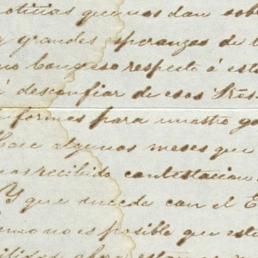 noticias que nos dan sob
grandes esperanzas de
Congreso respecto á est
á desconfiar de esos Sres
formes para nuestro go
hace algunos meses que
recibido contestacion
Y que suceda con el E
como no es posible que est